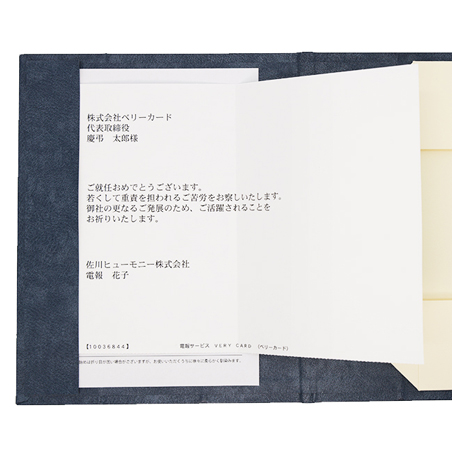 株式会社ベリーカード
代表取締役
慶弔　太郎様
ご就任おめでとうございます。
若くして重責を担われるご苦労をお察しいたします。
御社の更なるご発展のため、ご活躍されることを
お祈りいたします。
佐川ヒューモニー株式会社
電報　花子
【10036844】
電報サービス VERY CARD (ベリーカード)